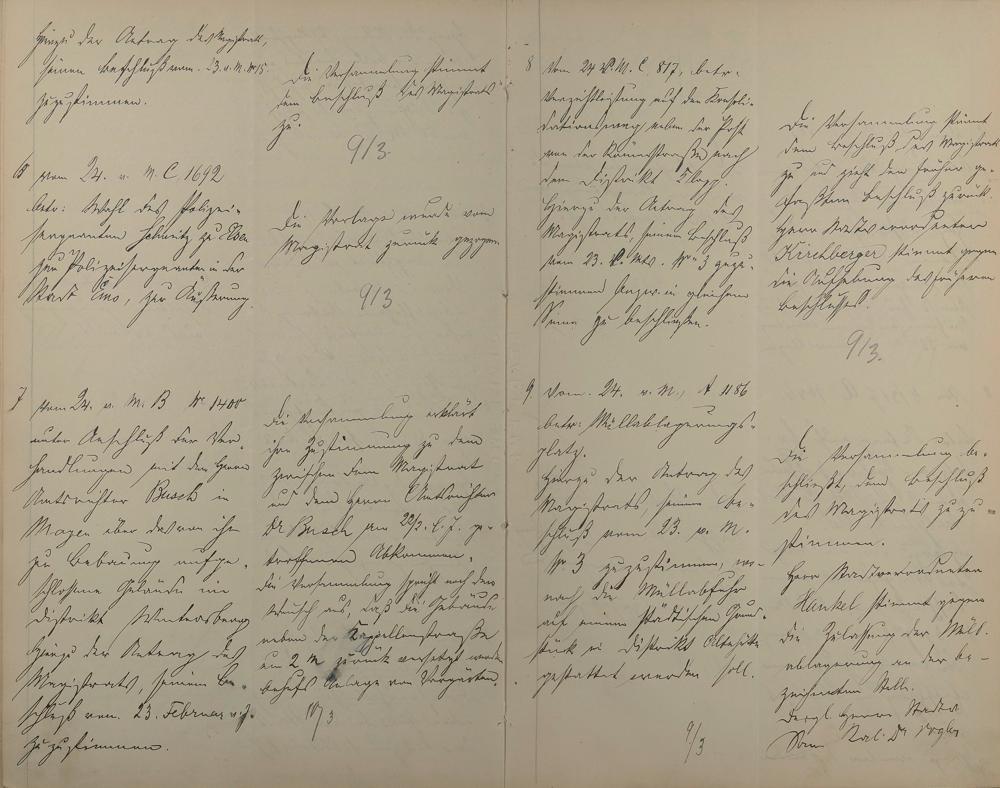 Hierzu der Antrag des Magistrats,
seinem Beschluß vom 23. v. M. Nr 15.
zuzustimmen.
Die Versammlung stimmt
dem Beschluß des Magistrats
zu.
9/3.
6 vom 24. v. M. C. 1692
betr: Wahl des Polizei-
sergeanten zu
zum Polizeisergeanten in der
Stadt Ems, zur Äußerung.
Die Vorlage wurde vom
Magistrat zurück gezogen.
9/3
7 vom 24. v. M. B Nr. 1400
unter Anschluß der Ver-
handlungen mit dem Herrn
Amtsrichter Busch in
über das von ihm
zur Bebauung
Gebäude im
Distrikt Wintersberg
Hierzu der Antrag des
Magistrats, seinem Be-
schluß vom 23. Februar v. J.
zuzustimmen.
Die Versammlung erklärt
ihre Zustimmung zu dem
zwischen dem Magistrat
und dem Herrn Amtsrichter
Dr Busch am 20/2. l. J. ge-
troffenen Abkommen.
Die Versammlung spricht noch den
Wunsch aus, daß die Gebäude
neben der Kapellenstraße
um 2 m zurück versetzt werden
behufs Anlage von Vorgärten.
10/3
8 Vom 24 v. M. C. 817, betr.
Verzichtleistung auf den Konsoli-
dationsweg neben der Post
von der Römerstraße nach
dem Distrikt Klopp.
Hierzu der Antrag des
Magistrats, seinem Beschluß
vom 23. v. Mts. Nr 3 zuzu-
stimmen bezw. in gleichem
Sinne zu beschließen.
Die Versammlung stimmt
dem Beschluß des Magistrats
zu und zieht den früher ge-
faßten Beschluß zurück.
Herr Stadtverordneter
Kirchberger stimmt gegen
die Aufhebung des früheren
Beschlusses.
9/3.
9. Vom 24. v. M., A 1186
betr: Müllablagerungs-
platz.
Hierzu der Antrag des
Magistrats seinem Be-
schluß vom 23. v. M.
Nr 3 zuzustimmen, wo-
nach die Müllabfuhr
auf einem städtischen Grund-
stück im Distrikt
gestattet werden soll.
9/3
Die Versammlung be-
schließt, dem Beschluß
des Magistrats zuzu-
stimmen.
Herr Stadtverordneter
Hankel stimmt gegen
die Zulassung der Müll-
ablagerung an der be-
zeichneten Stelle.
Dergl. Herr Stadtv.
Dr Vogler